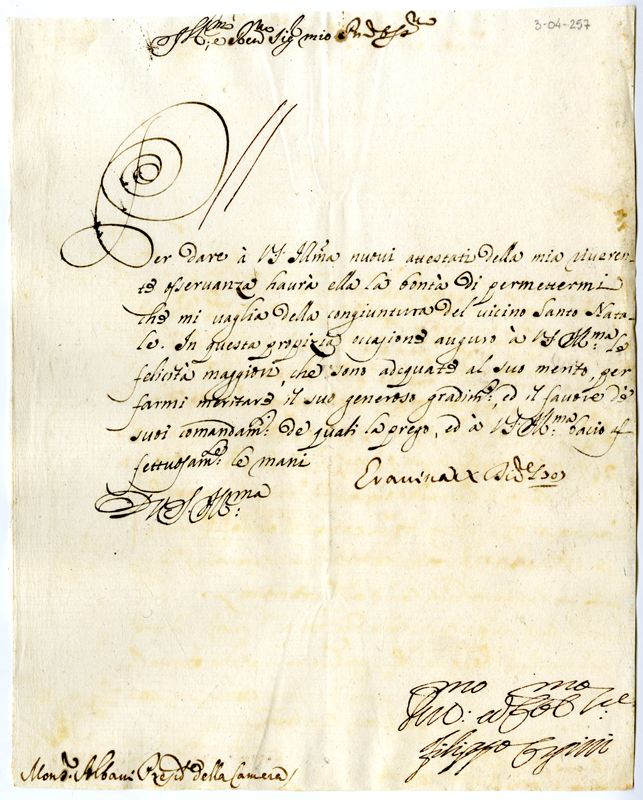 3-04-257
Ill.mo, e Rev.mo Sig.r mio P̄rōn Oss.mo
Per dare à VS Ill̄ma nuoui attestati della mia riueren-
te osseruanza haurà ella la bontà di permettermi
che mi vaglia della congiuntura del vicino Santo Nata-
le. In questa propizia occasione auguro à VS Ill.ma le
felicità maggiori, che sono adequate al suo merito, per
farmi meritare il suo generoso gradim.to, ed il fauore de
suoi comandam.ti de quali la prego, ed à VS Ill.ma bacio af
fettuosam.te le mani
Di VS Ill.ma
Filippo
Mons.r Albani Presid.te della Camera